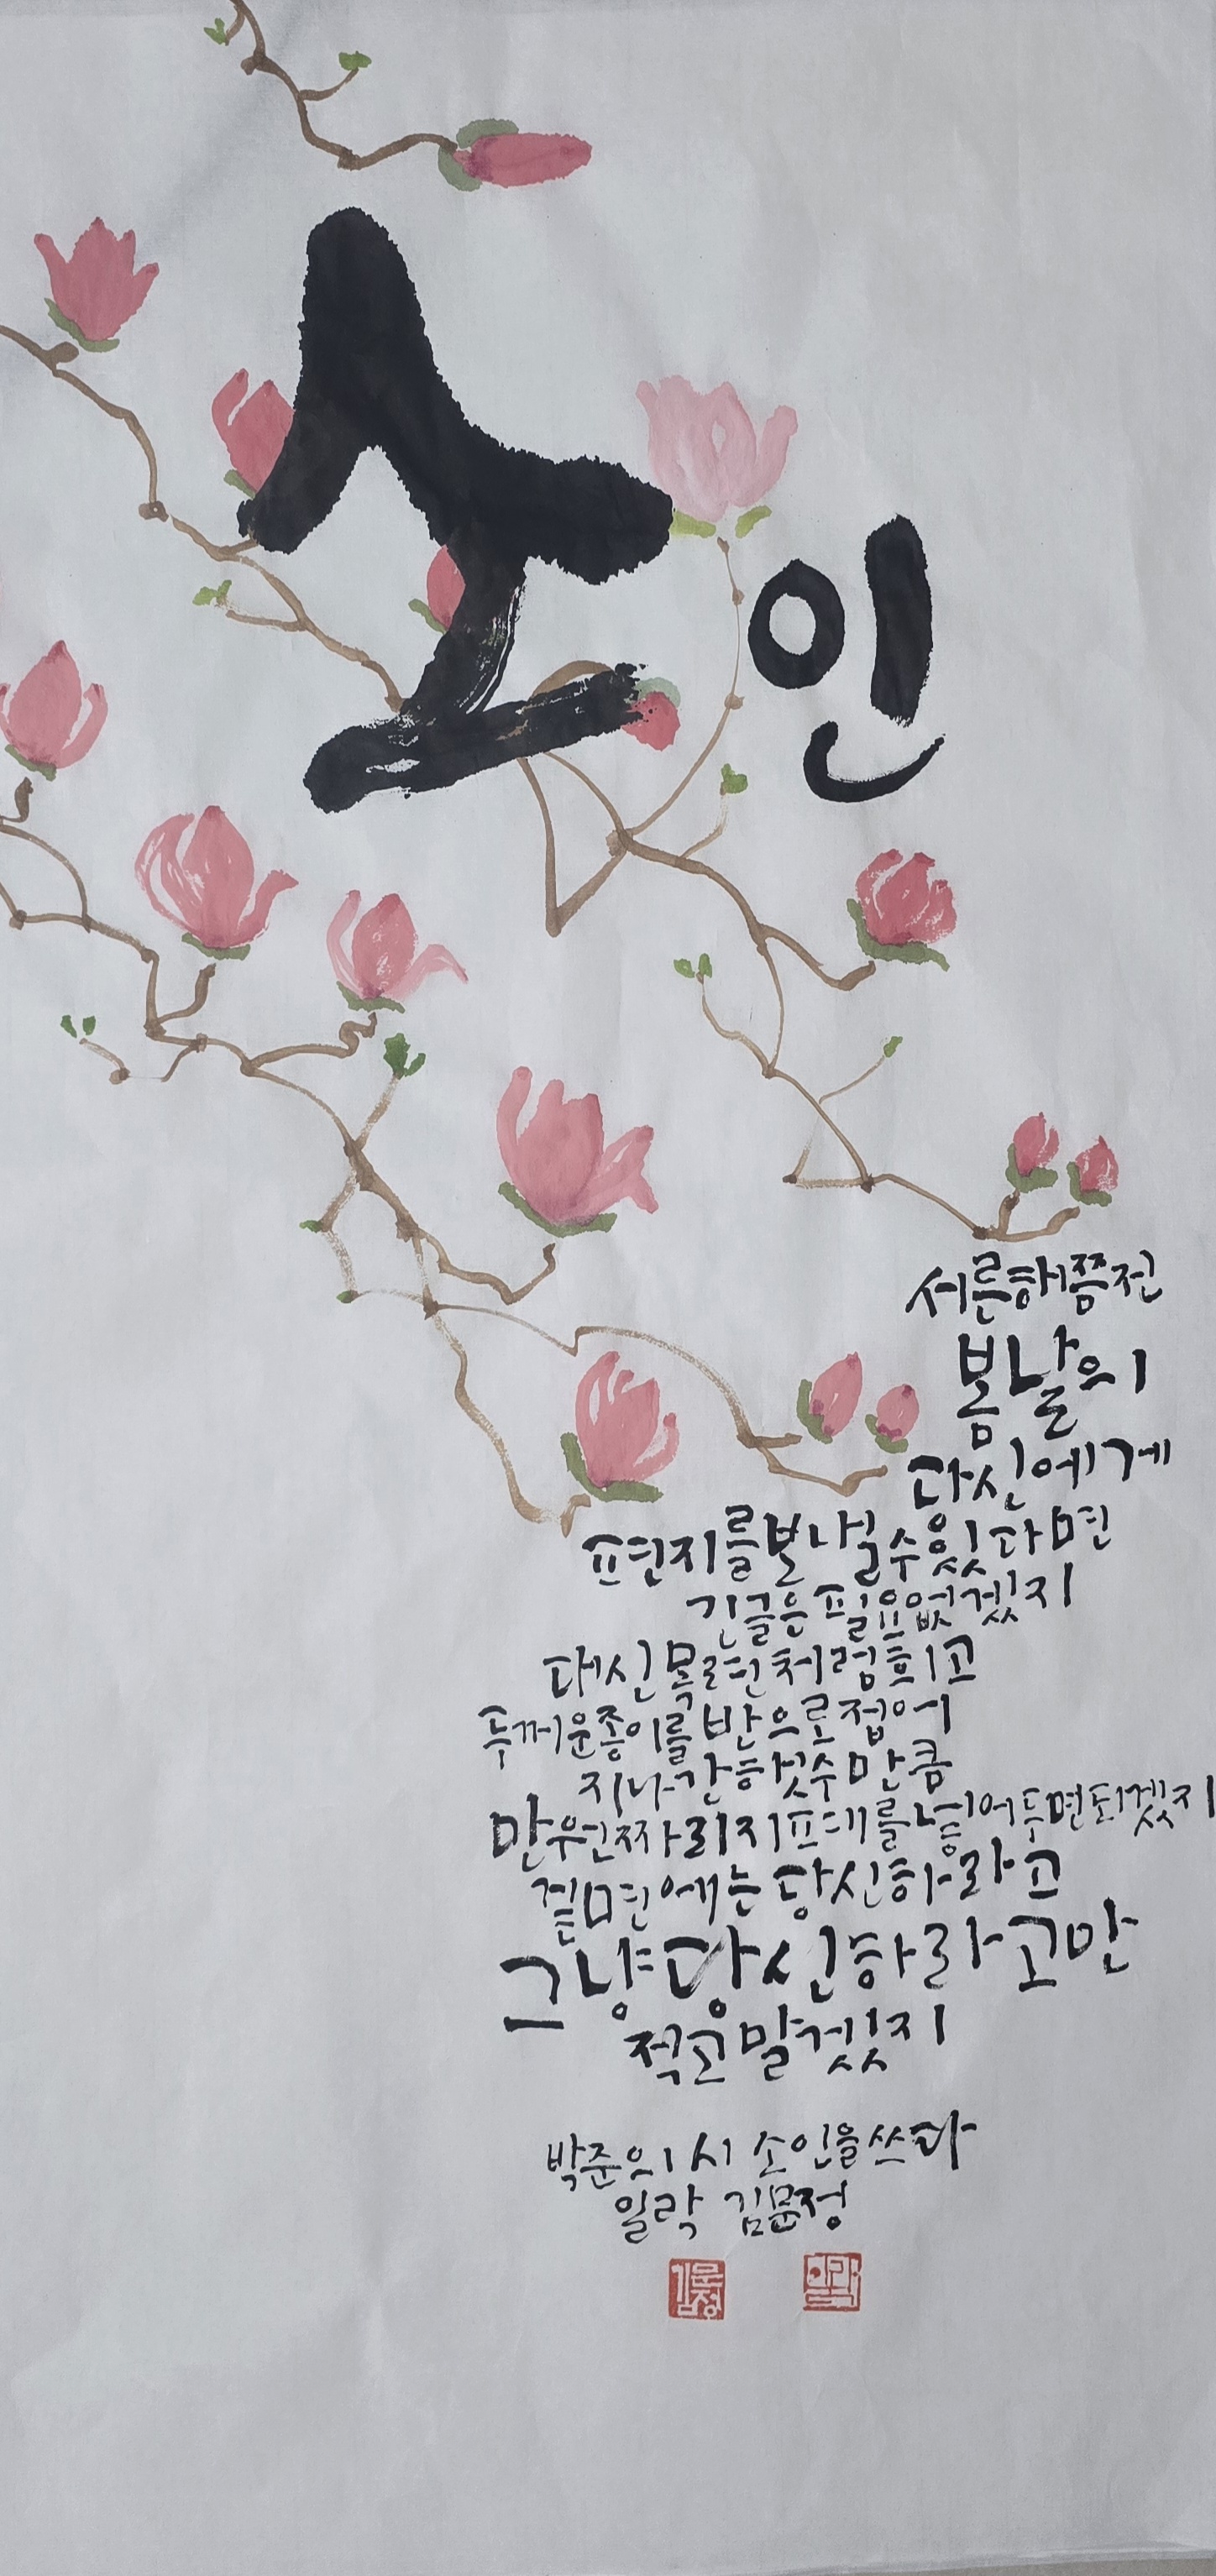 소인
서른해쯤전
봄날의
당신에게
편지를보낼수있다면
긴글은필요없겠지
대신목련처럼희고
두꺼운종이를반으로접어
지나간햇수만큼
만원짜리지폐를넣어두면되겠지
겉면에는당신하라고
그냥당신하라고만
적고말겠지
박준의 시 소인을 쓰다
일락 김문정
김문정
일락